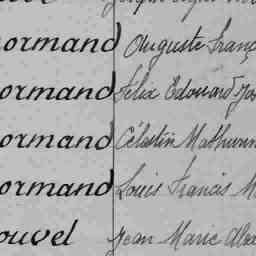 ormand Auguste Franç
ormand Félix Edouard Jos
ormand Célestin Mathurin
ormand Louis Francis M
ouvel Jean Marie Alex